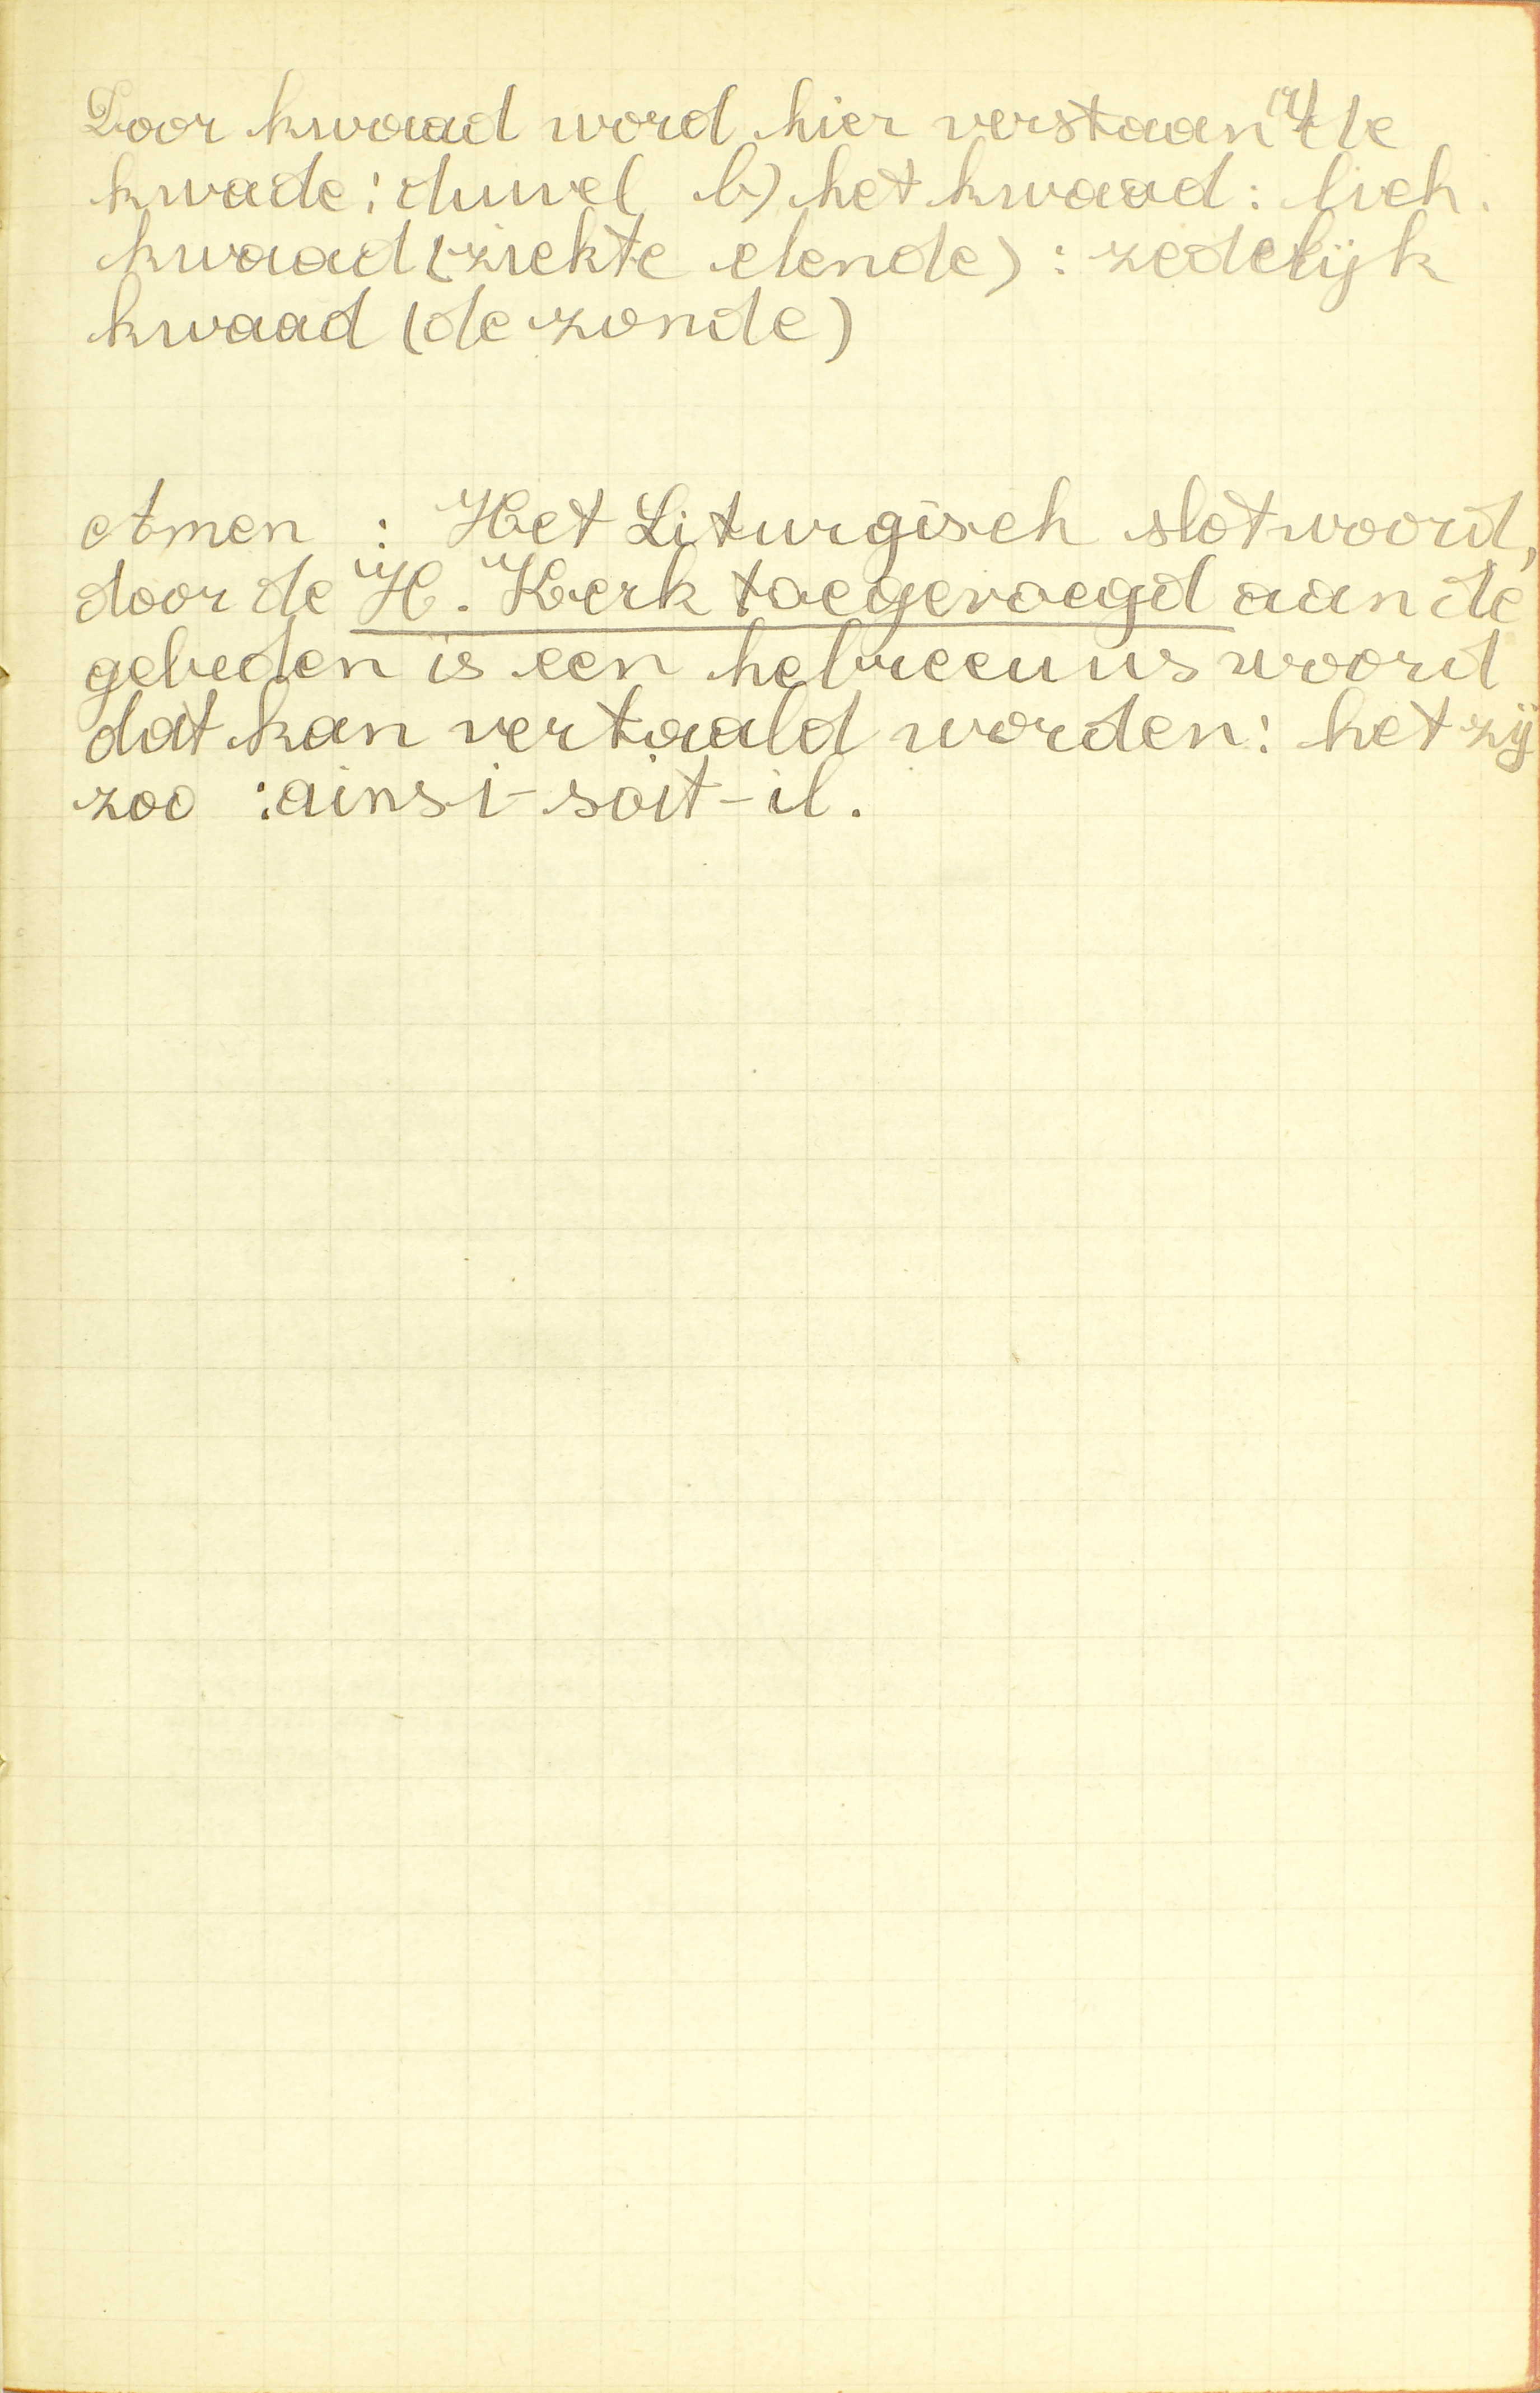 Door kwaad word hier verstaan a) de
kwade: duivel b) het kwaad: lich.
kwaad (ziekte elende) : zedelijk
kwaad (de zonde)
Amen : Het Liturgisch slotwoord,
door de H. Kerk toegevoegd aan de
gebeden is een hebreeuws woord
dat kan vertaald worden: het zij
zoo : ainsi-soit-il.